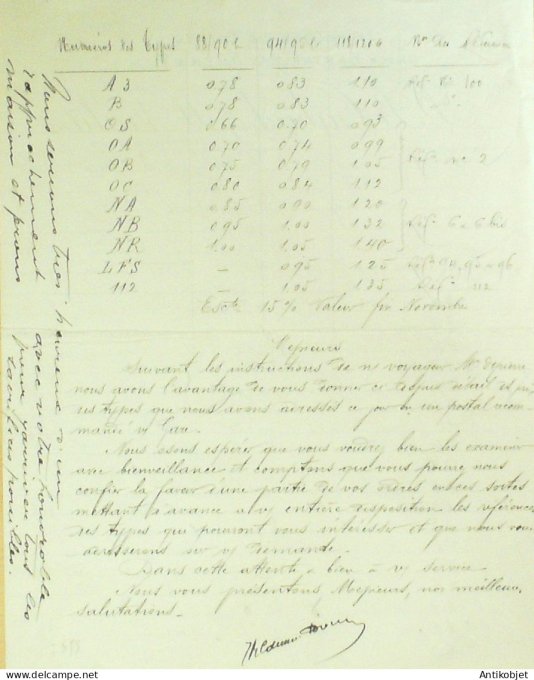 Numéros des Types 88/90 c 94/96 c 118/120 c
A 3 0.78 0.83 1.10 Réf. 100
B 0.78 0.83 1.10 "
OS 0.66 0.70 0.93
OA 0.70 0.74 0.99
OB 0.75 0.79 1.05 Réf. no 2
OC 0.80 0.84 1.12
NA 0.85 0.90 1.20
NB 0.95 1.00 1.32 Réf. 6 a 6 bis
NR 1.00 1.05 1.40
LFS – 0.95 1.25 94, 95 96
112 – 1.05 1.35 Réf. 112
Escte 15 % Valeur fin Novembre
Messieurs
Suivant les instructions de n/ voyageur Mr
nous avons l'avantage de vous donner ci et
les types que nous avons adressés ce jour postal recom
mandé v/ Gare.
Nous osons espérer que vous voudrez bien les examiner
avec bienveillance et comptons que vous pourrez nous
confier la faveur d'une partie de vos ordres en ces sortes
mettant d'avance a v/ entière disposition les références
des types qui pourront vous intéresser et que nous vous
adresserons sur v/ demande.
Dans cette attente & bien à v/ service
Nous vous présentons Messieurs, nos meilleures
salutations.
Nous serions très heureux d'un
rapprochement avec votre honorable
maison et ferions pour y arriver tous les
sacrifices possibles.
www.antikfrance.com